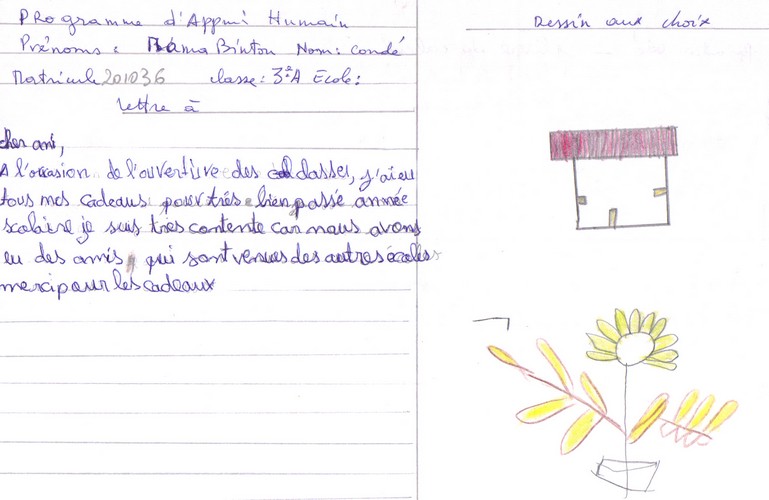 PRogramme d'Appui Humain
Prénoms : Mama Binton Nom: Condé
Matricule 201036 classe: 3ª A Ecole:
Lettre à
cher ami,
A l'occasion de l'ouverture des classes, j'ai eu
tous mes cadeaux pour très bien passé année
scolaire je suis très contente car nous avons
eu des amis, qui sont venues des autres écolles
merci pour les cadeaux
Dessin aux choix